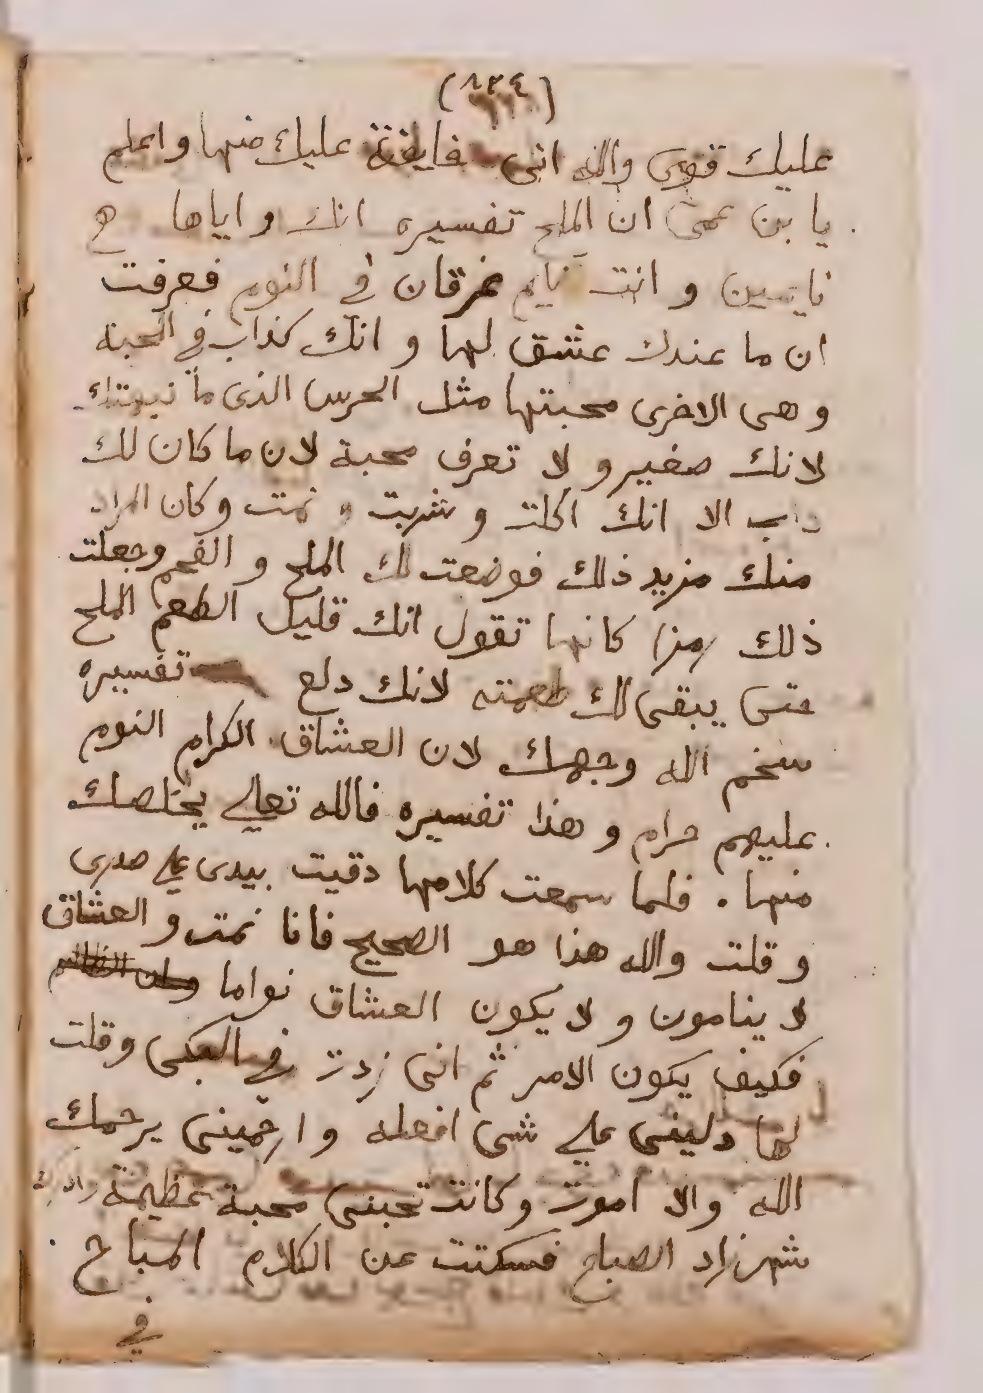 (٨٣٤)
عليك قوى والله انى خايفة عليك منها واعلم
يا بن عمى ان الملح تفسيره انك واياها
نايمين و انت نايم غرقان في النوم فعرفت
ان ما عندك عشق لها و انك كذاب في المحبة
و هى الاخرى محبتها مثل الحرس الذى ما نبهتك
لانك صغير و لا تعرف محبة لان ما كان لك
داب الا انك اكلت و شربت و نمت وكان المراد
منك مزيد ذلك فوضعت لك الملح و الفحم وجعلت
ذلك رمزا كانها تقول انك قليل الطعم الملح
حتى يبقى لك طعمته لانك دلع تفسيره
سخم الله وجهك لان العشاق الكرام النوم
عليهم حرام و هذا تفسيره فالله تعالى يخلصك
منها . فلما سمعت كلامها دقيت بيدى على صدرى
و قلت والله هذا هو الصحيح فانا نمت و العشاق
لا ينامون و لا يكون العشاق نواما
فكيف يكون الامر ثم انى زدت في البكى وقلت
لها دلينى على شى افعله و ارحمينى يرحمك
الله والا اموت وكانت تحبنى محبة عظيمة وادرك
شهرزاد الصباح فسكتت عن الكلام المباح
في